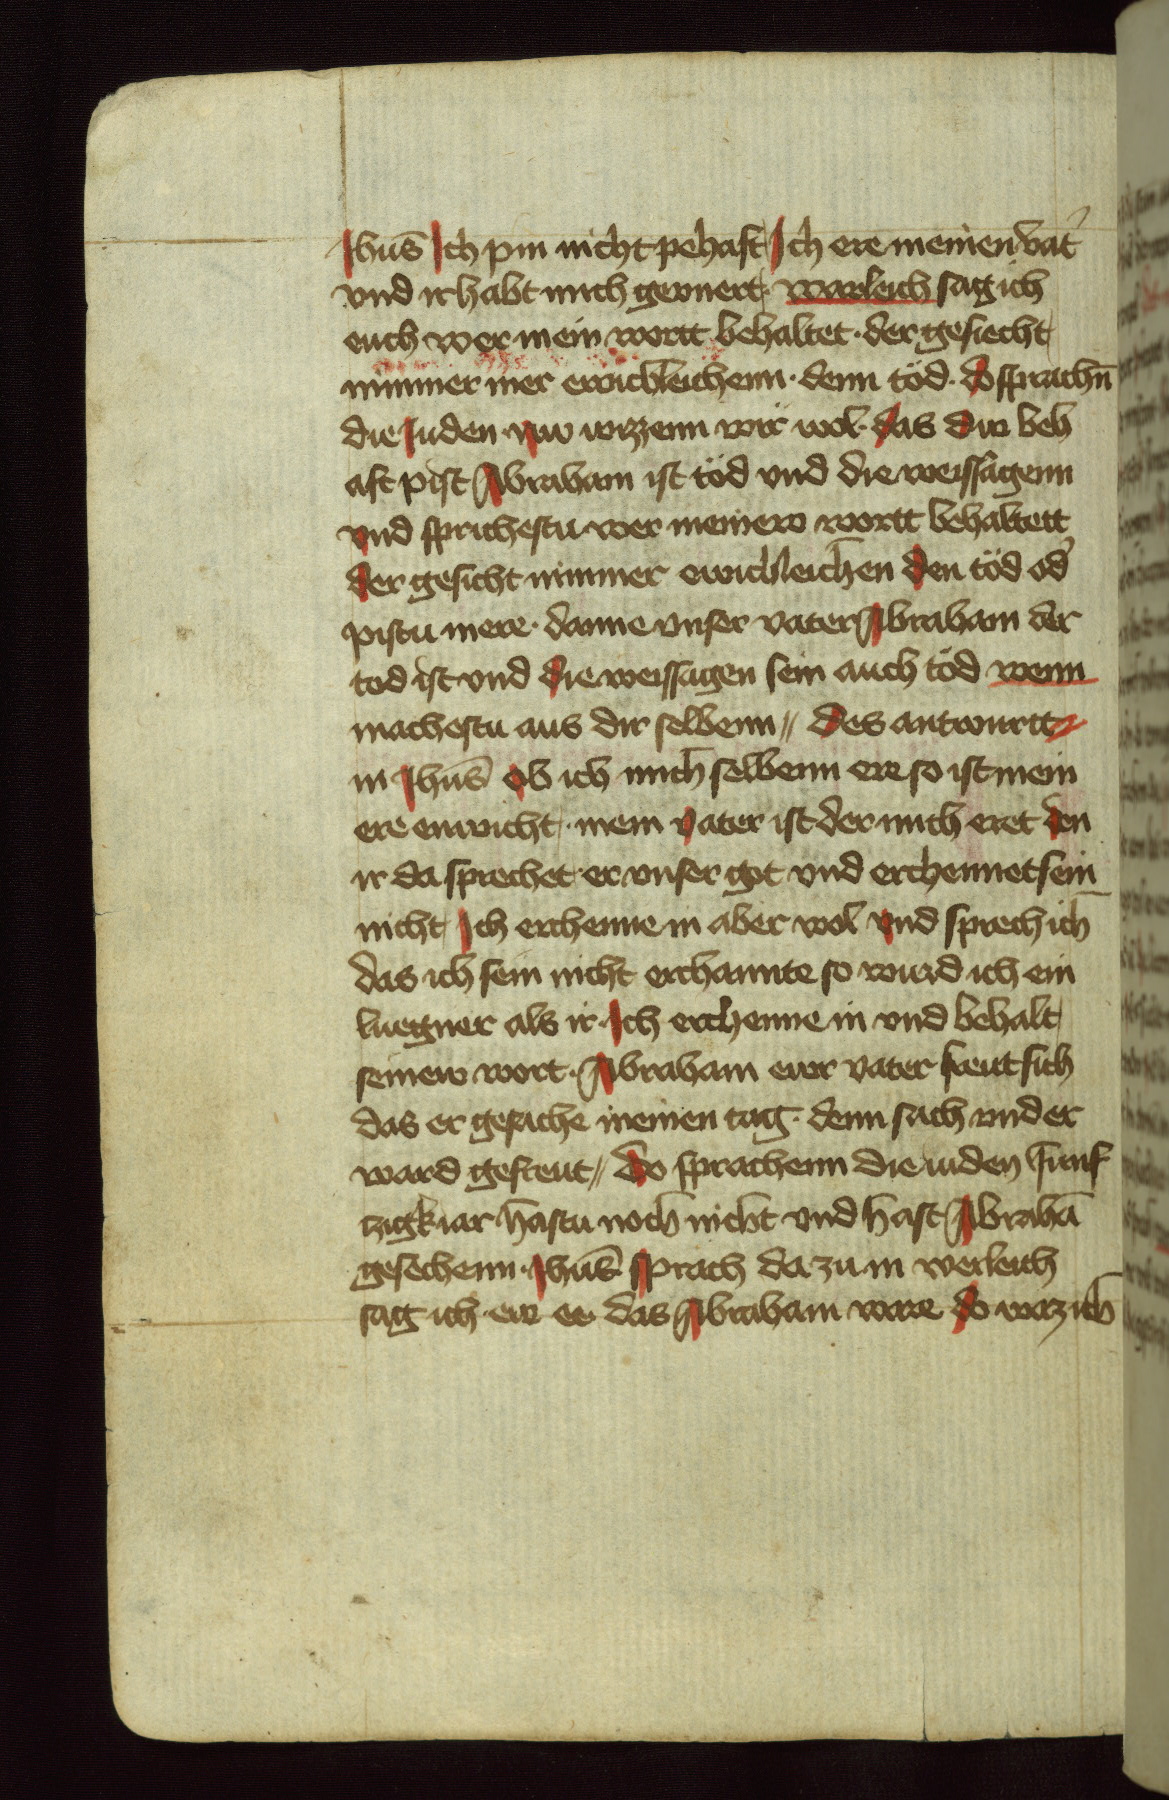 Jhus̄ Ich pin nicht pehaft Ich ere meinen vat᾽
vnd ir habt mich gevnert· warleich sag ich
euch wer mein wortt behaltet· der gesiecht
nimmer mer ewichleichenn· denn töd· do sprachn̄
die Juden nw wizzenn wir wol· das du beh
aft pist Abraham ist töd vnd die weissagenn
vnd sprichestu wer meinew wortt behaltett
der gesicht nimmer ewichleichen den töd od᾽
pistu mere· danne vnser vater Abraham der
tod ist vnd die weissagen sein auch töd wenn
machestu aus dir selbenn // des antwurtt
in Jhus̄ ob ich mich selbenn ere so ist mein
ere enwicht· mein vater ist der mich eret den
ir da sprechet er vnser got vnd erchennet sein
nicht Ich erchenne in aber wol vnd sprech ich
das ich sein nicht erchannte so wurd ich ein
luegner als ir· Ich erchenne in vnd behalt
seinew wort· Abraham ewr vater freut sich
das er gesache meinen tag· denn sach vnd er
ward gefreut // do sprachenn die iuden funf
tzigk iar hastu noch nicht vnd hast Abrahā
gesechenn· Jhus̄ sprach da zu in werleich
sag ich ew ee das Abraham ware do waz ich